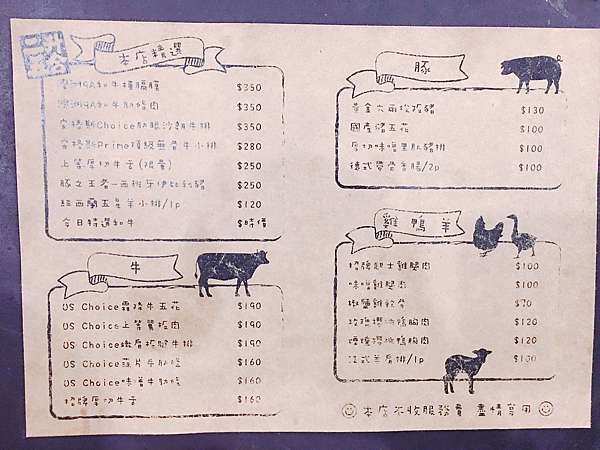 本店精選
澳洲9A和牛橫膈膜 $350
澳洲9A和牛肋條肉 $350
安格斯Choice肋眼沙朗牛排 $350
安格斯Prime頂級無骨牛小排 $280
上等厚切牛舌(限量) $250
豚之王者-西班牙伊比利豬 $250
紐西蘭五星羊小排/1p $120
今日特選和牛 $時價
牛
US Choice霜降牛五花 $190
US Choice上等翼板肉 $190
US Choice嫩肩板腱牛排 $190
US Choice蔬片牛肋條 $160
US Choice味噌牛肋條 $160
招牌厚切牛舌 $160
豚
黃金六兩松板豬 $130
國產豬五花 $100
厚切味噌里肌豬排 $100
德式帶骨香腸/2p $100
雞 鴨 羊
招牌起士雞腿肉 $100
味噌雞腿肉 $100
椒鹽雞軟骨 $70
玫瑰櫻桃鴨胸肉 $120
煙燻櫻桃鴨胸肉 $120
法式羊肩排/1p $100
本店不收服務費 盡情享用